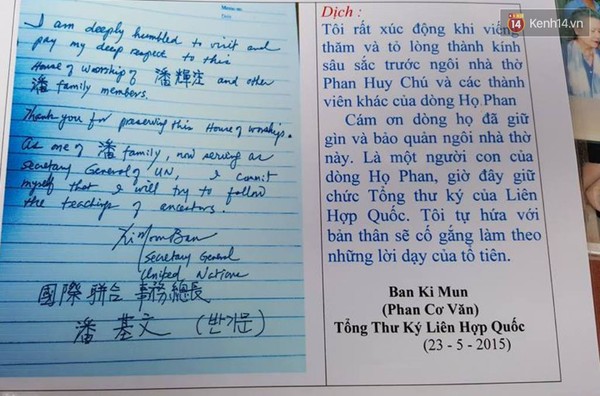 Kenh14.vn
MEMO NO.
DATE
I am deeply humbled to visit and
pay my deep respect to this
House of worship of 潘輝注 and other
潘 family members.
Thank you for preserving this House of worship.
As one of 潘 family, now serving as
Secretary General of UN, I commit
myself that I will try to follow
the teachings of ancestors.
Ki Moon Ban
Secretary General
United Nations
國際聯合 事務總長
潘基文 (반기문)
Dịch :
Tôi rất xúc động khi viếng
thăm và tỏ lòng thành kính
sâu sắc trước ngôi nhà thờ
Phan Huy Chú và các thành
viên khác của dòng Họ Phan
Cám ơn dòng họ đã giữ
gìn và bảo quản ngôi nhà thờ
này. Là một người con của
dòng Họ Phan, giờ đây giữ
chức Tổng thư ký của Liên
Hợp Quốc. Tôi tự hứa với
bản thân sẽ cố gắng làm theo
những lời dạy của tổ tiên.
Ban Ki Mun
(Phan Cơ Văn)
Tổng Thư Ký Liên Hợp Quốc
(23 - 5 - 2015)